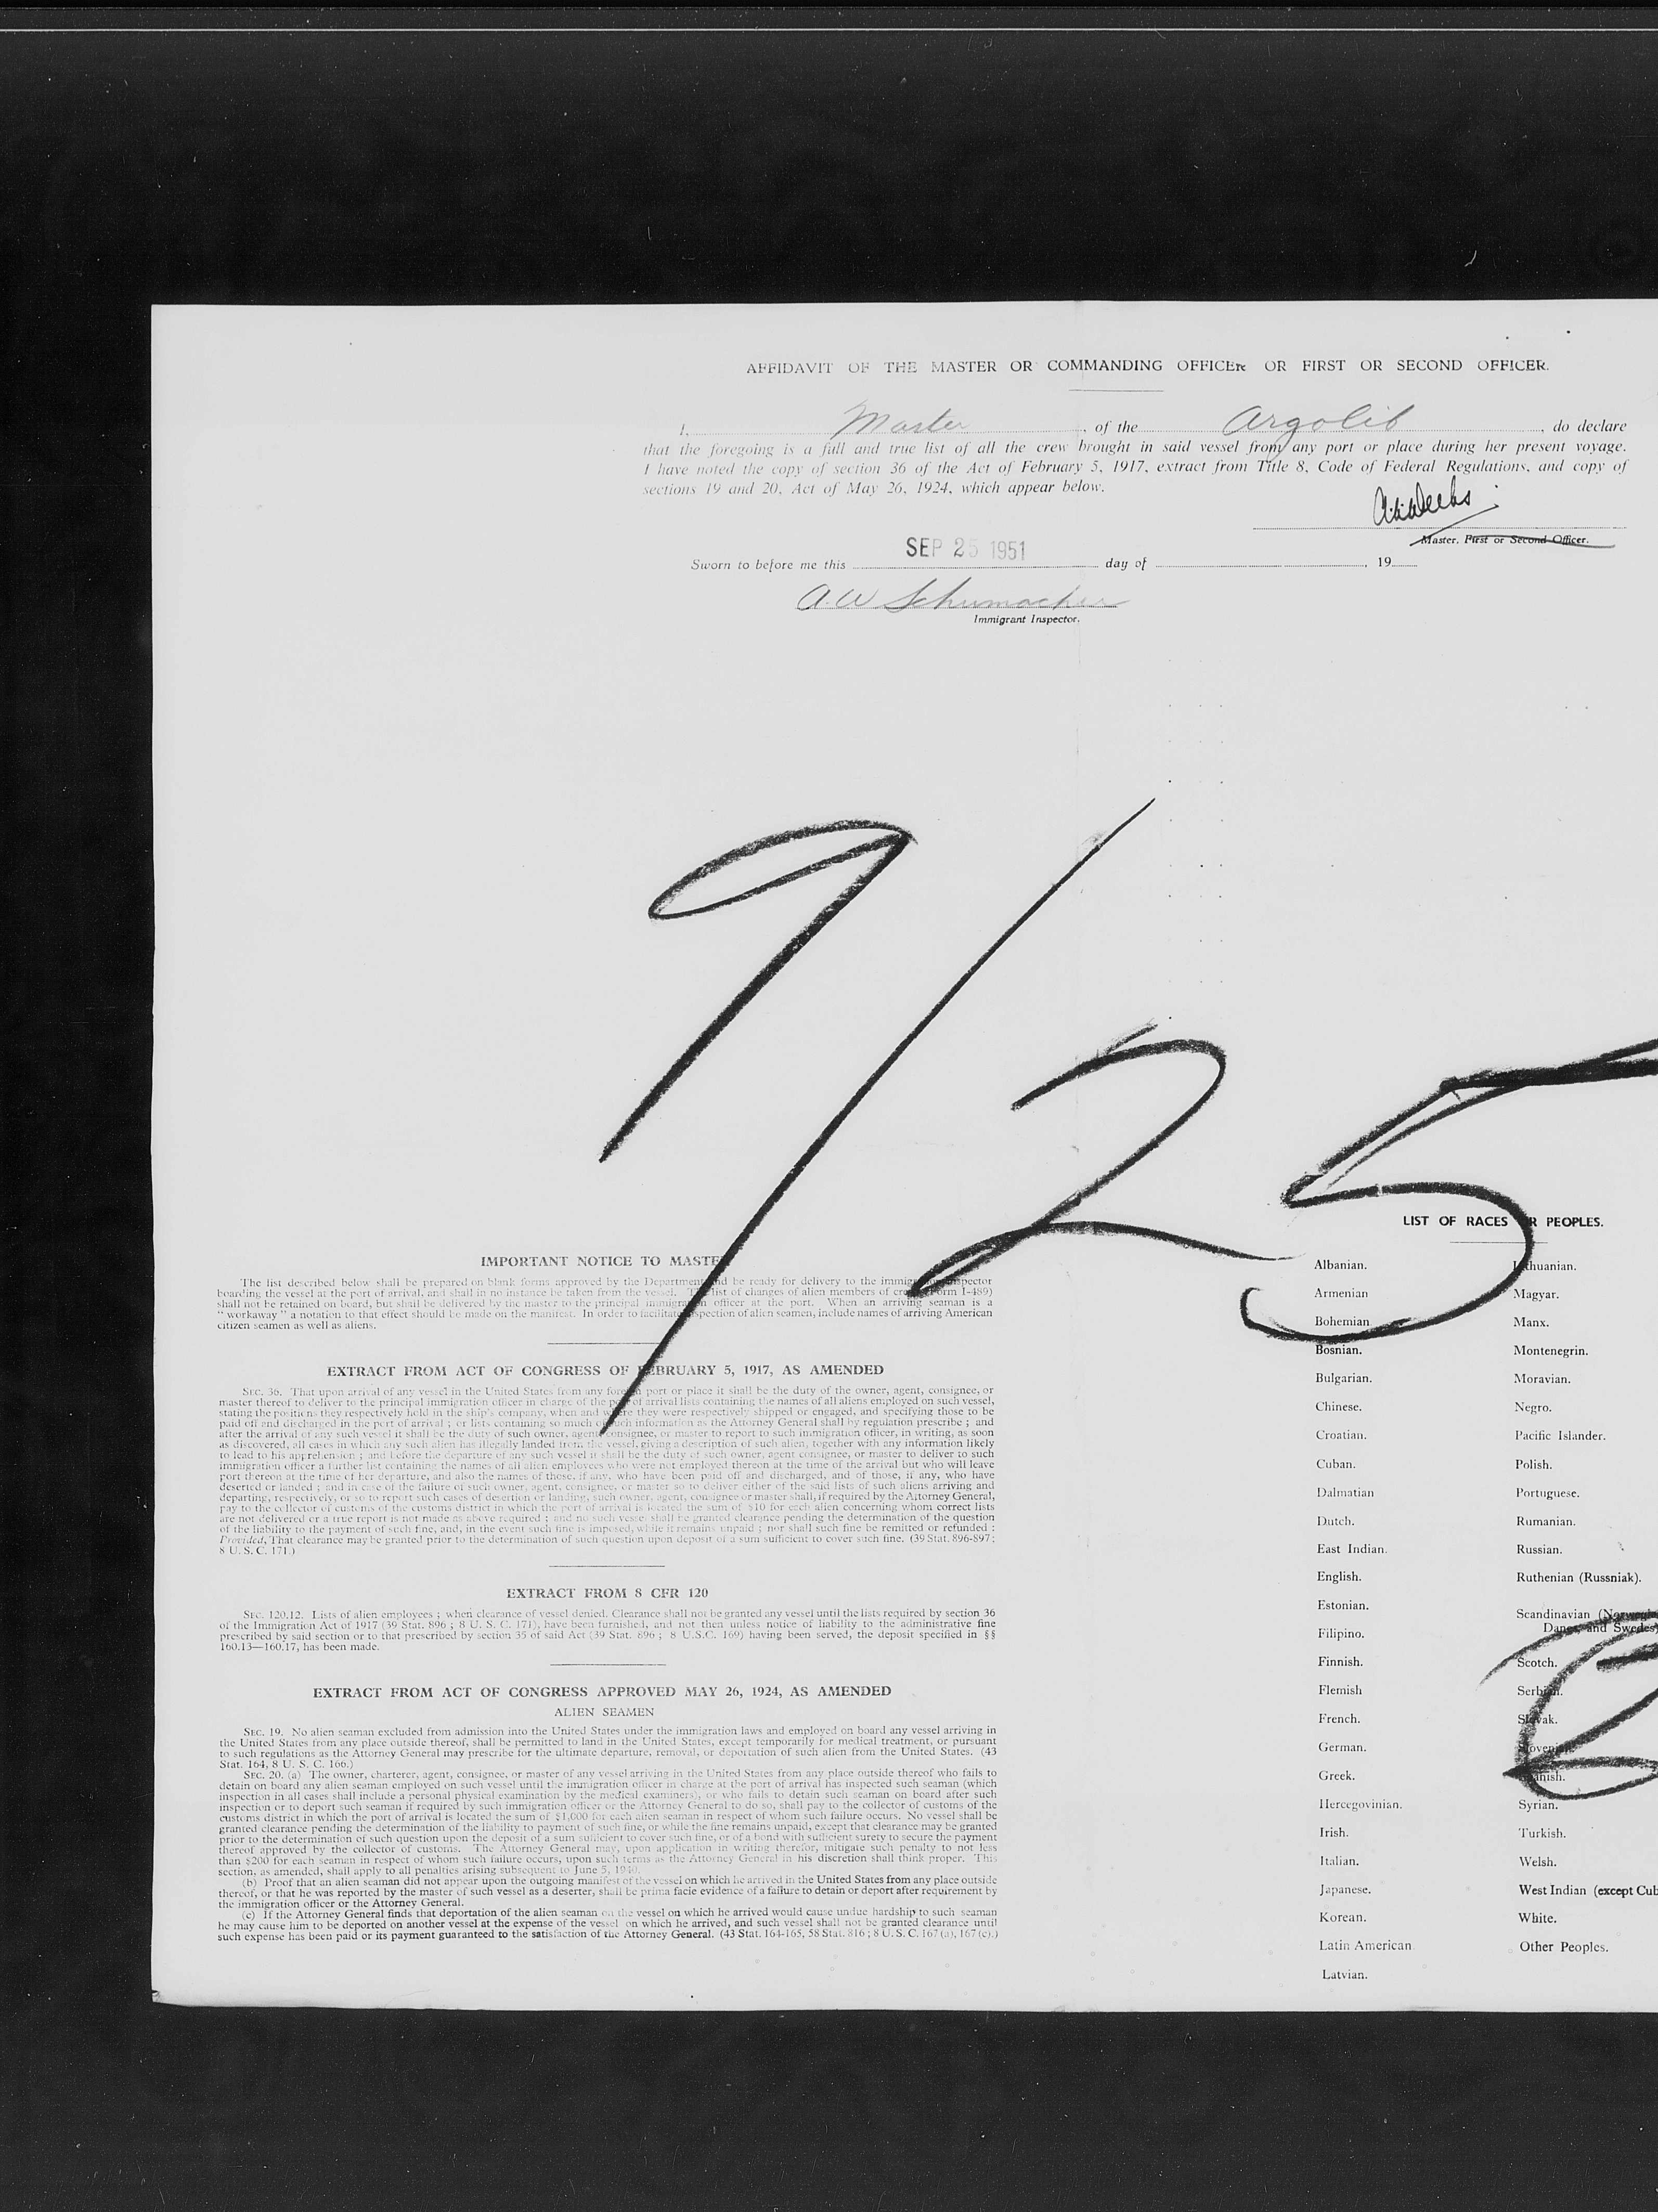 AFFIDAVIT OF THE MASTER OR COMMANDING OFFICER OR FIRST OR SECOND OFFICER.
I, Master, of the Argolib, do declare
that the foregoing is a full and true list of all the crew brought in said vessel from any port or place during her present voyage.
I have noted the copy of section 36 of the Act of February 5, 1917, extract from Title 8, Code of Federal Regulations, and copy of
sections 19 and 20, Act of May 26, 1924, which appear below.
Master, First or Second Officer.
Sworn to before me this SEP 25 1951 day of , 19
A.W Schumacher
Immigrant Inspector.
9/25
IMPORTANT NOTICE TO MASTER
The list described below shall be prepared on blank forms approved by the Department and be ready for delivery to the immigrant inspector
boarding the vessel at the port of arrival, and shall in no instance be taken from the vessel. The list of changes of alien members of crew (Form I-489)
shall not be retained on board, but shall be delivered by the master to the principal immigration officer at the port. When an arriving seaman is a
"workaway" a notation to that effect should be made on the manifest. In order to facilitate inspection of alien seamen, include names of arriving American
citizen seamen as well as aliens.
EXTRACT FROM ACT OF CONGRESS OF FEBRUARY 5, 1917, AS AMENDED
SEC. 36. That upon arrival of any vessel in the United States from any foreign port or place it shall be the duty of the owner, agent, consignee, or
master thereof to deliver to the principal immigration officer in charge of the port of arrival lists containing the names of all aliens employed on such vessel,
stating the positions they respectively hold in the ship's company, when and where they were respectively shipped or engaged, and specifying those to be
paid off and discharged in the port of arrival ; or lists containing so much of such information as the Attorney General shall by regulation prescribe ; and
after the arrival of any such vessel it shall be the duty of such owner, agent, consignee, or master to report to such immigration officer, in writing, as soon
as discovered, all cases in which any such alien has illegally landed from the vessel, giving a description of such alien, together with any information likely
to lead to his apprehension ; and before the departure of any such vessel it shall be the duty of such owner, agent consignee, or master to deliver to such
immigration officer a further list containing the names of all alien employees who were not employed thereon at the time of the arrival but who will leave
port thereon at the time of her departure, and also the names of those, if any, who have been paid off and discharged, and of those, if any, who have
deserted or landed ; and in case of the failure of such owner, agent, consignee, or master so to deliver either of the said lists of such aliens arriving and
departing, respectively, or so to report such cases of desertion or landing, such owner, agent, consignee or master shall, if required by the Attorney General,
pay to the collector of customs of the customs district in which the port of arrival is located the sum of $10 for each alien concerning whom correct lists
are not delivered or a true report is not made as above required ; and no such vessel shall be granted clearance pending the determination of the question
of the liability to the payment of such fine, and, in the event such fine is imposed, while it remains unpaid ; nor shall such fine be remitted or refunded :
Provided, That clearance may be granted prior to the determination of such question upon deposit of a sum sufficient to cover such fine. (39 Stat. 896-897;
8 U. S. C. 171.)
EXTRACT FROM 8 CFR 120
SEC. 120.12. Lists of alien employees ; when clearance of vessel denied. Clearance shall not be granted any vessel until the lists required by section 36
of the Immigration Act of 1917 (39 Stat. 896 ; 8 U. S. C. 171), have been furnished, and not then unless notice of liability to the administrative fine
prescribed by said section or to that prescribed by section 35 of said Act (39 Stat. 896 ; 8 U.S.C. 169) having been served, the deposit specified in §§
160.13—160.17, has been made.
EXTRACT FROM ACT OF CONGRESS APPROVED MAY 26, 1924, AS AMENDED
ALIEN SEAMEN
SEC. 19. No alien seaman excluded from admission into the United States under the immigration laws and employed on board any vessel arriving in
the United States from any place outside thereof, shall be permitted to land in the United States, except temporarily for medical treatment, or pursuant
to such regulations as the Attorney General may prescribe for the ultimate departure, removal, or deportation of such alien from the United States. (43
Stat. 164, 8 U. S. C. 166.)
SEC. 20. (a) The owner, charterer, agent, consignee, or master of any vessel arriving in the United States from any place outside thereof who fails to
detain on board any alien seaman employed on such vessel until the immigration officer in charge at the port of arrival has inspected such seaman (which
inspection in all cases shall include a personal physical examination by the medical examiners), or who fails to detain such seaman on board after such
inspection or to deport such seaman if required by such immigration officer or the Attorney General to do so, shall pay to the collector of customs of the
customs district in which the port of arrival is located the sum of $1,000 for each alien seaman in respect of whom such failure occurs. No vessel shall be
granted clearance pending the determination of the liability to payment of such fine, or while the fine remains unpaid, except that clearance may be granted
prior to the determination of such question upon the deposit of a sum sufficient to cover such fine, or of a bond with sufficient surety to secure the payment
thereof approved by the collector of customs. The Attorney General may, upon application in writing therefor, mitigate such penalty to not less
than $200 for each seaman in respect of whom such failure occurs, upon such terms as the Attorney General in his discretion shall think proper. This
section, as amended, shall apply to all penalties arising subsequent to June 5, 1940.
(b) Proof that an alien seaman did not appear upon the outgoing manifest of the vessel on which he arrived in the United States from any place outside
thereof, or that he was reported by the master of such vessel as a deserter, shall be prima facie evidence of a failure to detain or deport after requirement by
the immigration officer or the Attorney General.
(c) If the Attorney General finds that deportation of the alien seaman on the vessel on which he arrived would cause undue hardship to such seaman
he may cause him to be deported on another vessel at the expense of the vessel on which he arrived, and such vessel shall not be granted clearance until
such expense has been paid or its payment guaranteed to the satisfaction of the Attorney General. (43 Stat. 164-165, 58 Stat. 816 ; 8 U. S. C. 167 (a), 167 (c).)
LIST OF RACES OR PEOPLES.
Albanian.
Armenian
Bohemian
Bosnian.
Bulgarian.
Chinese.
Croatian.
Cuban.
Dalmatian
Dutch.
East Indian.
English.
Estonian.
Filipino.
Finnish.
Flemish
French.
German.
Greek.
Hercegovinian.
Irish.
Italian.
Japanese.
Korean.
Latin American
Latvian.
Lithuanian.
Magyar.
Manx.
Montenegrin.
Moravian.
Negro.
Pacific Islander.
Polish.
Portuguese.
Rumanian.
Russian.
Ruthenian (Russniak).
Scandinavian (Norwegia
Danes, and Swedes)
Scotch.
Serbian.
Slovak.
Slovenian.
Spanish.
Syrian.
Turkish.
Welsh.
West Indian (except Cub
White.
Other Peoples.